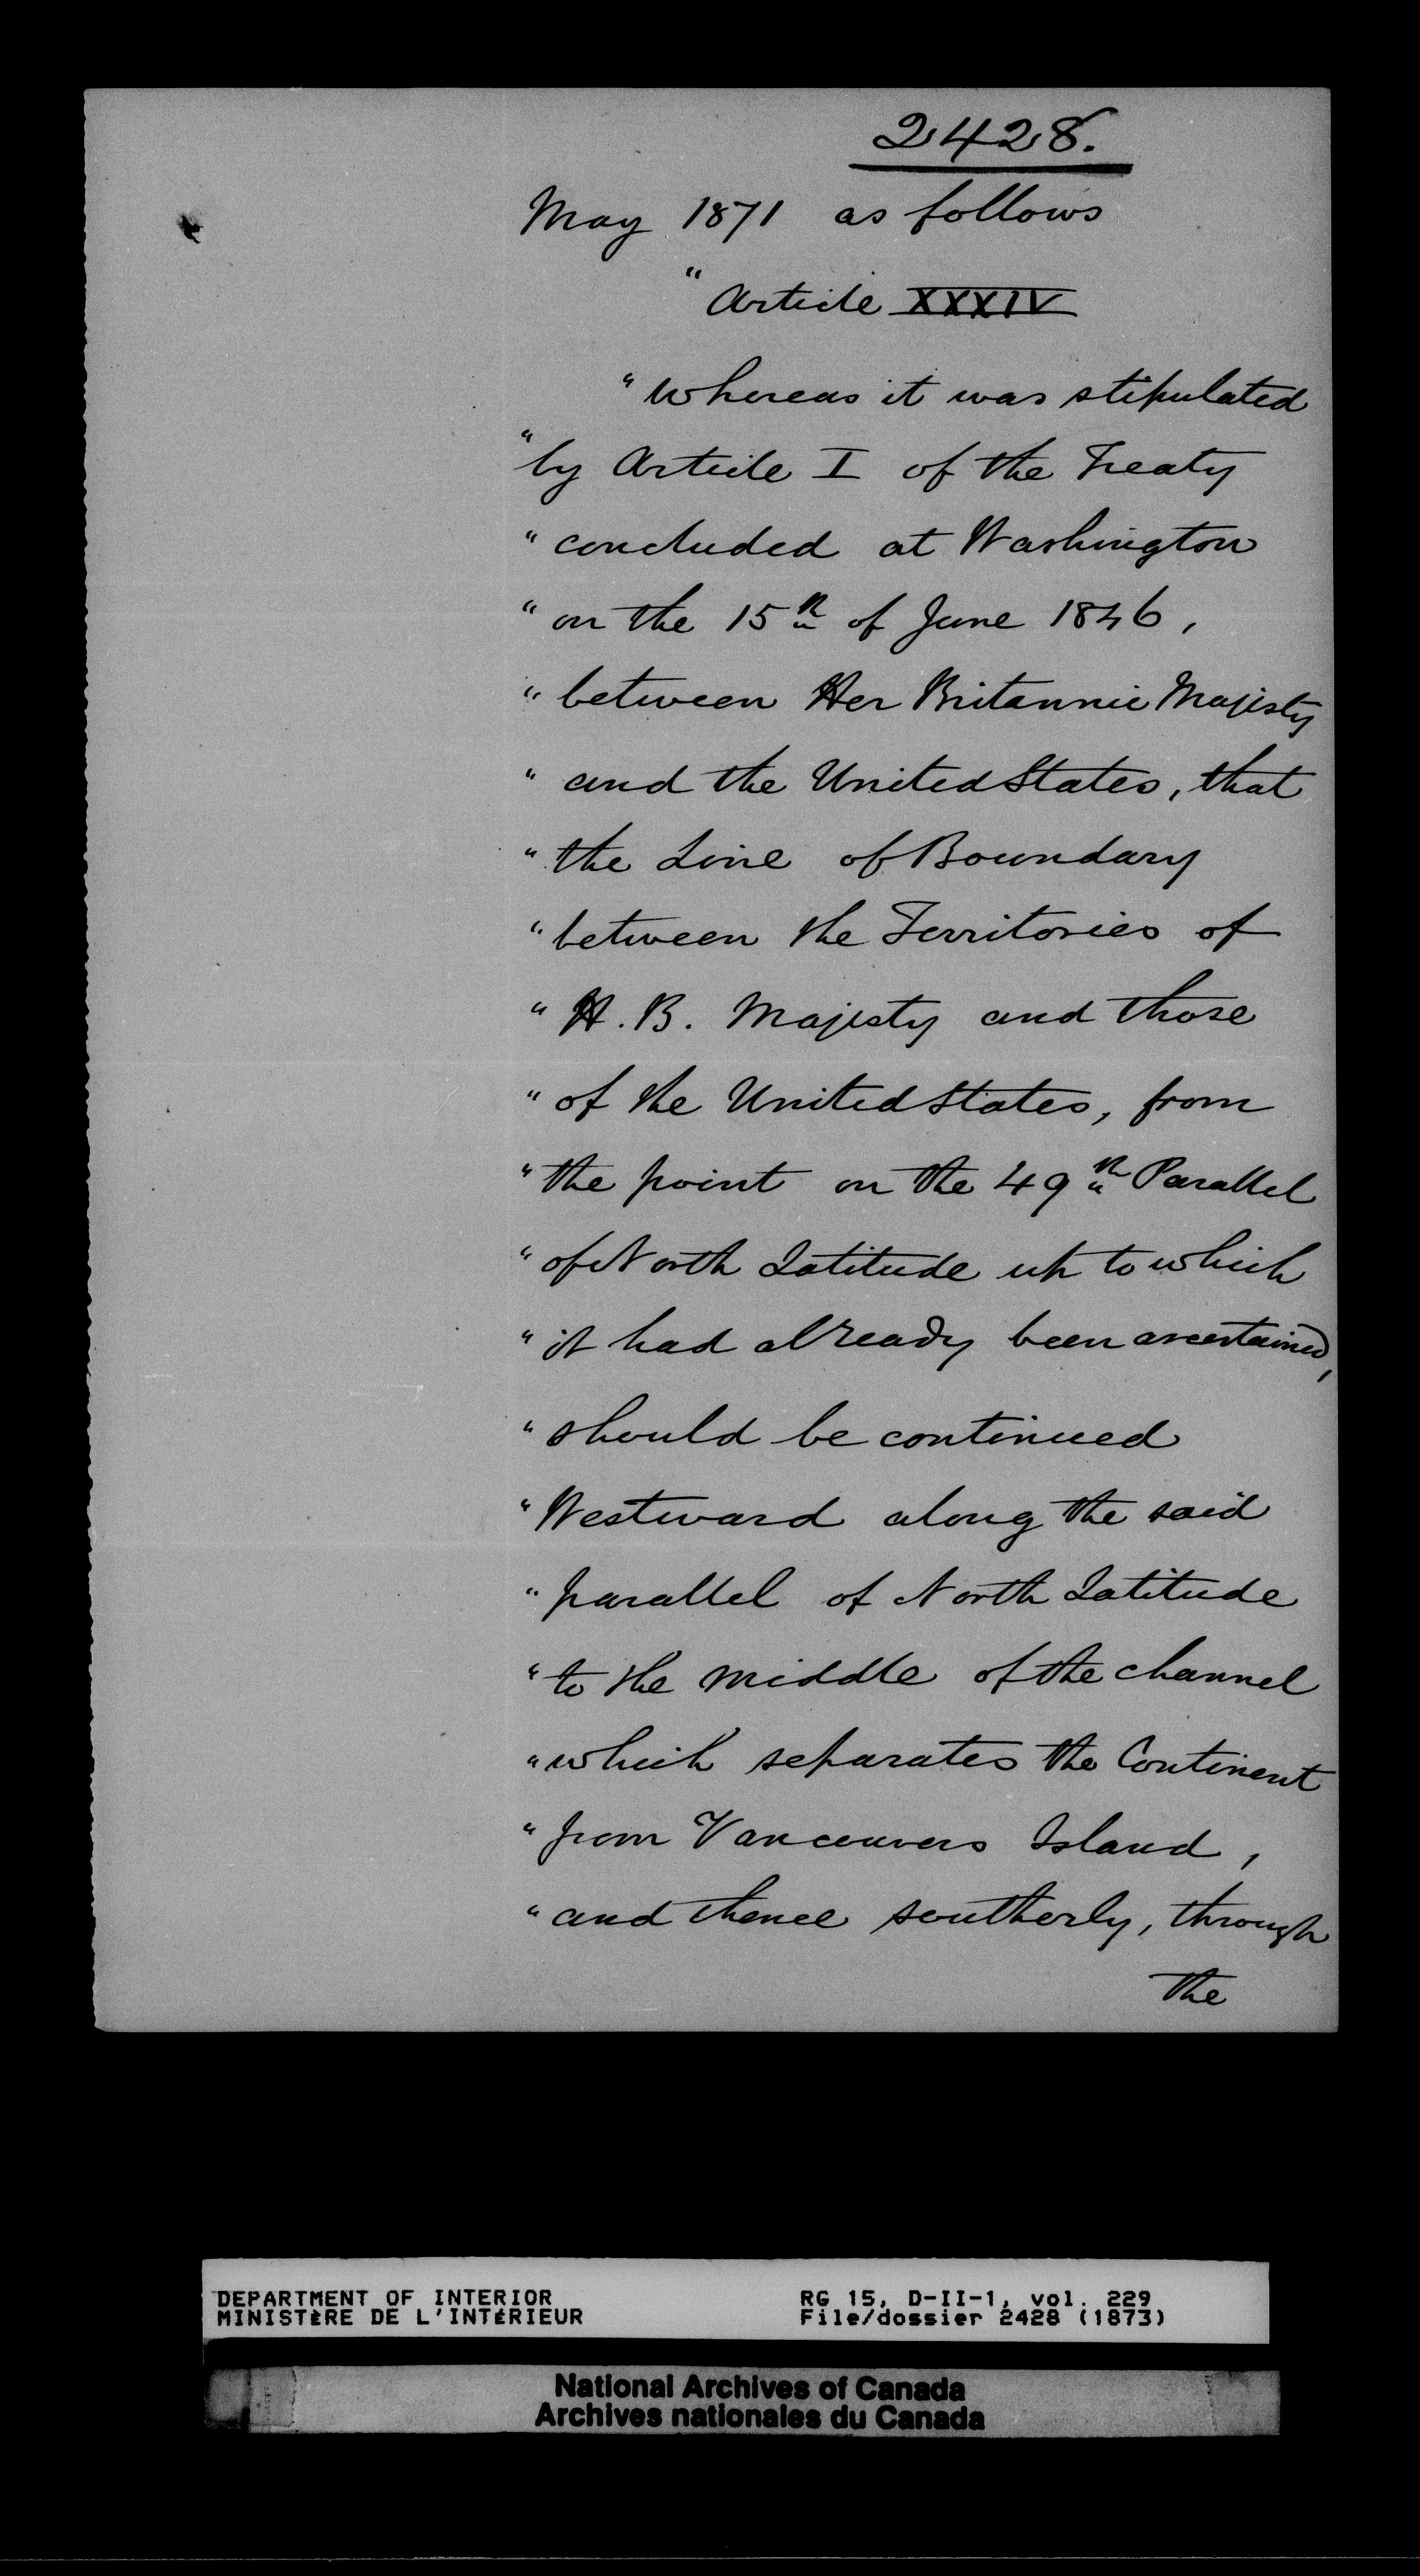 2428.
May 1871 as follows
"Article XXXIV
"Whereas it was stipulated
"by Article I of the Treaty
"concluded at Washington
"on the 15th of June 1846,
"between Her Britannic Majesty
"and the United States, that
"the Line of Boundary
"between the Territories of
"H. B. Majesty and those
"of the United States, from
"the point on the 49th Parallel
"of North Latitude up to which
"it had already been ascertained,
"should be continued
"Westward along the said
"parallel of North Latitude
"to the middle of the channel
"which separates the Continent
"from Vancouvers Island,
"and thence southerly, through
the
DEPARTMENT OF INTERIOR RG 15, D-II-1, vol. 229
MINISTÈRE DE L'INTÉRIEUR File/dossier 2428 (1873)
National Archives of Canada
Archives nationales du Canada